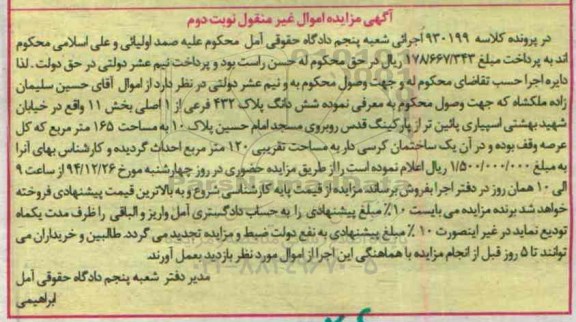 آگهی مزایده اموال غیر منقول نوبت دوم
در پرونده کلاسه ۹۳۰۱۹۹ اجرائی شعبه پنجم دادگاه حقوقی آمل محکوم علیه صمد اولیائی و علی اسلامی محکوم
اند به پرداخت مبلغ ۱۷۸/۶۶۷/۳۴۳ ریال در حق محکوم له حسن راست بود و پرداخت نیم عشر دولتی در حق دولت. لذا
دایره اجرا حسب تقاضای محکوم له و جهت وصول محکوم به و نیم عشر دولتی در نظر دارد از اموال آقای حسین سلیمان
زاده ملکشاه که جهت وصول محکوم به معرفی نموده شش دانگ پلاک ۴۳۲ فرعی از ۱ اصلی بخش ۱۱ واقع در خیابان
شهید بهشتی اسپیاری پائین تر از پارکینگ قدس روبروی مسجد امام حسین پلاک ۱۰ به مساحت ۱۶۵ متر مربع که کل
عرصه وقف بوده و در آن یک ساختمان کرسی دار به مساحت تقریبی ۱۲۰ متر مربع احداث گردیده و کارشناس بهای آنرا
به مبلغ ۱/۵۰۰/۰۰۰/۰۰۰ ریال اعلام نموده است را از طریق مزایده حضوری در روز چهارشنبه مورخ ۹۴/۱۲/۲۶ از ساعت ۹
الی ۱۰ همان روز در دفتر اجرا بفروش برساند. مزایده از قیمت پایه کارشناسی شروع و به بالاترین قیمت پیشنهادی فروخته
خواهد شد برنده مزایده می بایست ۱۰٪ مبلغ پیشنهادی را به حساب دادگستری آمل واریز و الباقی را ظرف مدت یکماه
تودیع نماید در غیر اینصورت ۱۰٪ مبلغ پیشنهادی به نفع دولت ضبط و مزایده تجدید می گردد. طالبین و خریداران می
توانند تا ۵ روز قبل از انجام مزایده با هماهنگی این اجرا از اموال مورد نظر بازدید بعمل آورند.
مدیر دفتر شعبه پنجم دادگاه حقوقی آمل
ابراهیمی